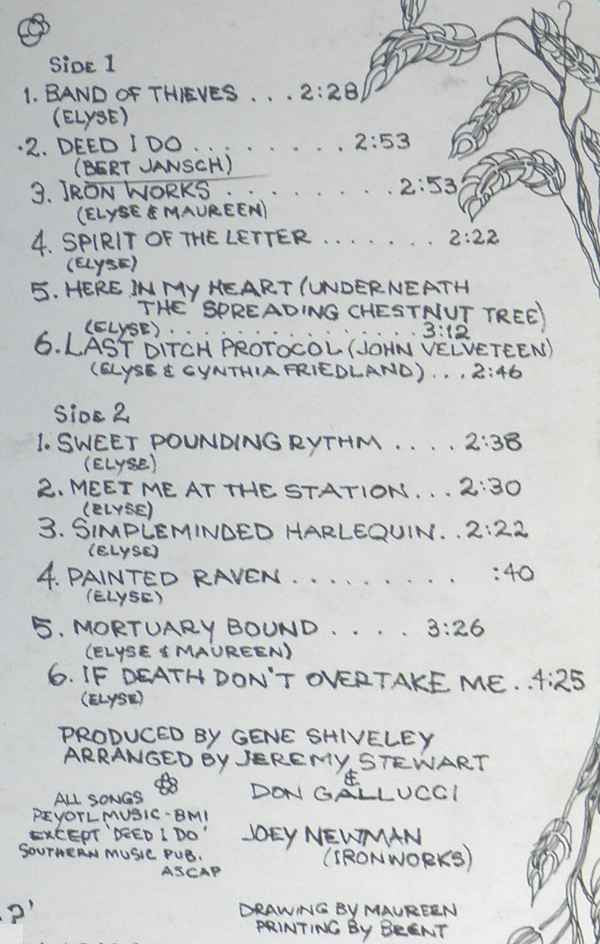 SIDE 1
1. BAND OF THIEVES ... 2:28
(ELYSE)
2. DEED I DO ......... 2:53
(BERT JANSCH)
3. IRON WORKS ......... 2:53
(ELYSE & MAUREEN)
4. SPIRIT OF THE LETTER ....... 2:22
(ELYSE)
5. HERE IN MY HEART (UNDERNEATH
THE SPREADING CHESTNUT TREE)
(ELYSE) ............... 3:12
6. LAST DITCH PROTOCOL (JOHN VELVETEEN)
(ELYSE & CYNTHIA FRIEDLAND) ... 2:46
SIDE 2
1. SWEET POUNDING RYTHM .... 2:38
(ELYSE)
2. MEET ME AT THE STATION... 2:30
(ELYSE)
3. SIMPLEMINDED HARLEQUIN.. 2:22
(ELYSE)
4. PAINTED RAVEN ......... :40
(ELYSE)
5. MORTUARY BOUND .... 3:26
(ELYSE & MAUREEN)
6. IF DEATH DON'T OVERTAKE ME .. 4:25
(ELYSE)
PRODUCED BY GENE SHIVELEY
ARRANGED BY JEREMY STEWART
&
DON GALLUCCI
JOEY NEWMAN
(IRONWORKS)
ALL SONGS
PEYOTL MUSIC - BMI
EXCEPT 'DEED I DO'
SOUTHERN MUSIC PUB.
ASCAP
DRAWING BY MAUREEN
PRINTING BY BRENT